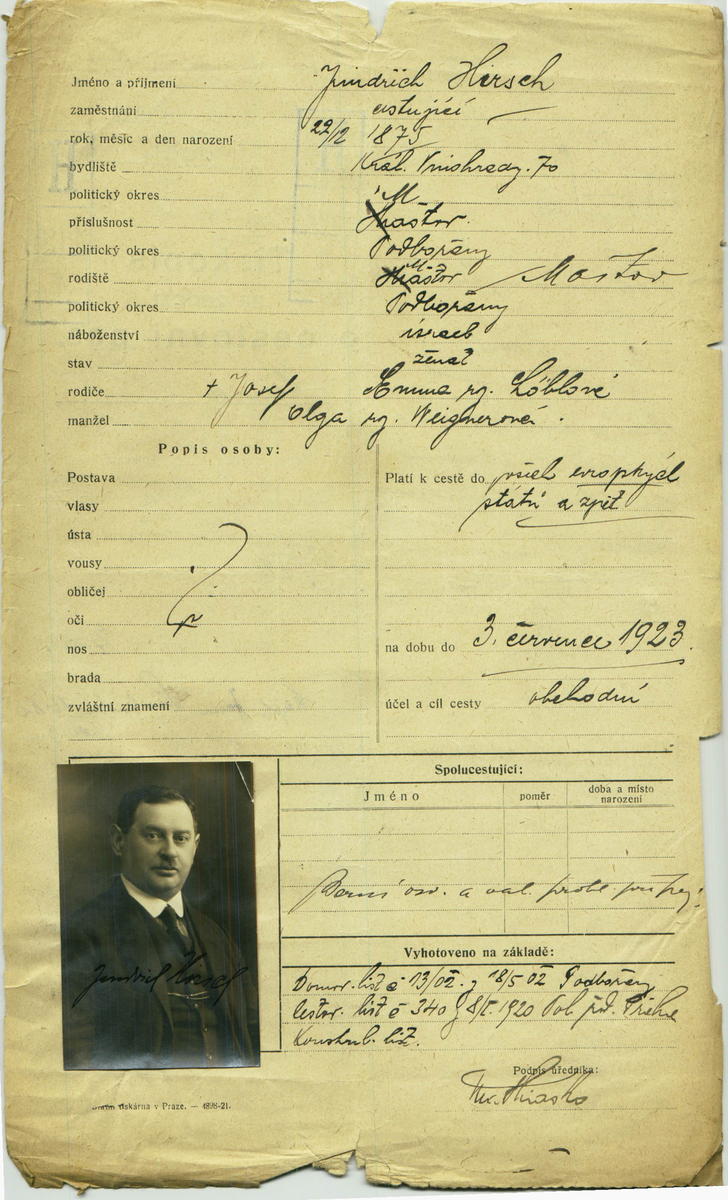 Jméno a příjmení Jindřich Hirsch
zaměstnání cestující
rok, měsíc a den narození 22/12 1875
bydliště Král. Vinohrady. 70
politický okres
příslušnost Mastov.
politický okres Podbořany
rodiště Mastov Mastov
politický okres Podbořany
náboženství israel
stav ženat
rodiče + Josef Emma roz. Löblové
manžel Olga roz. Weignerová.
Popis osoby:
Postava
vlasy
ústa
vousy
obličej
oči
nos
brada
zvláštní znamení
Platí k cestě do všech evropských
států a zpět
na dobu do 3. července 1923.
účel a cíl cesty obchodní
Spolucestující:
Jméno poměr doba a místo narození
Jindřich Hirsch
Vyhotoveno na základě:
Domov. list č 13/02. z 18/5 02 Podbořany
cestov. list č 340 z 1920 Pol. řed. Praha
list.
Podpis úředníka:
tiskárna v Praze. — 4898-21.